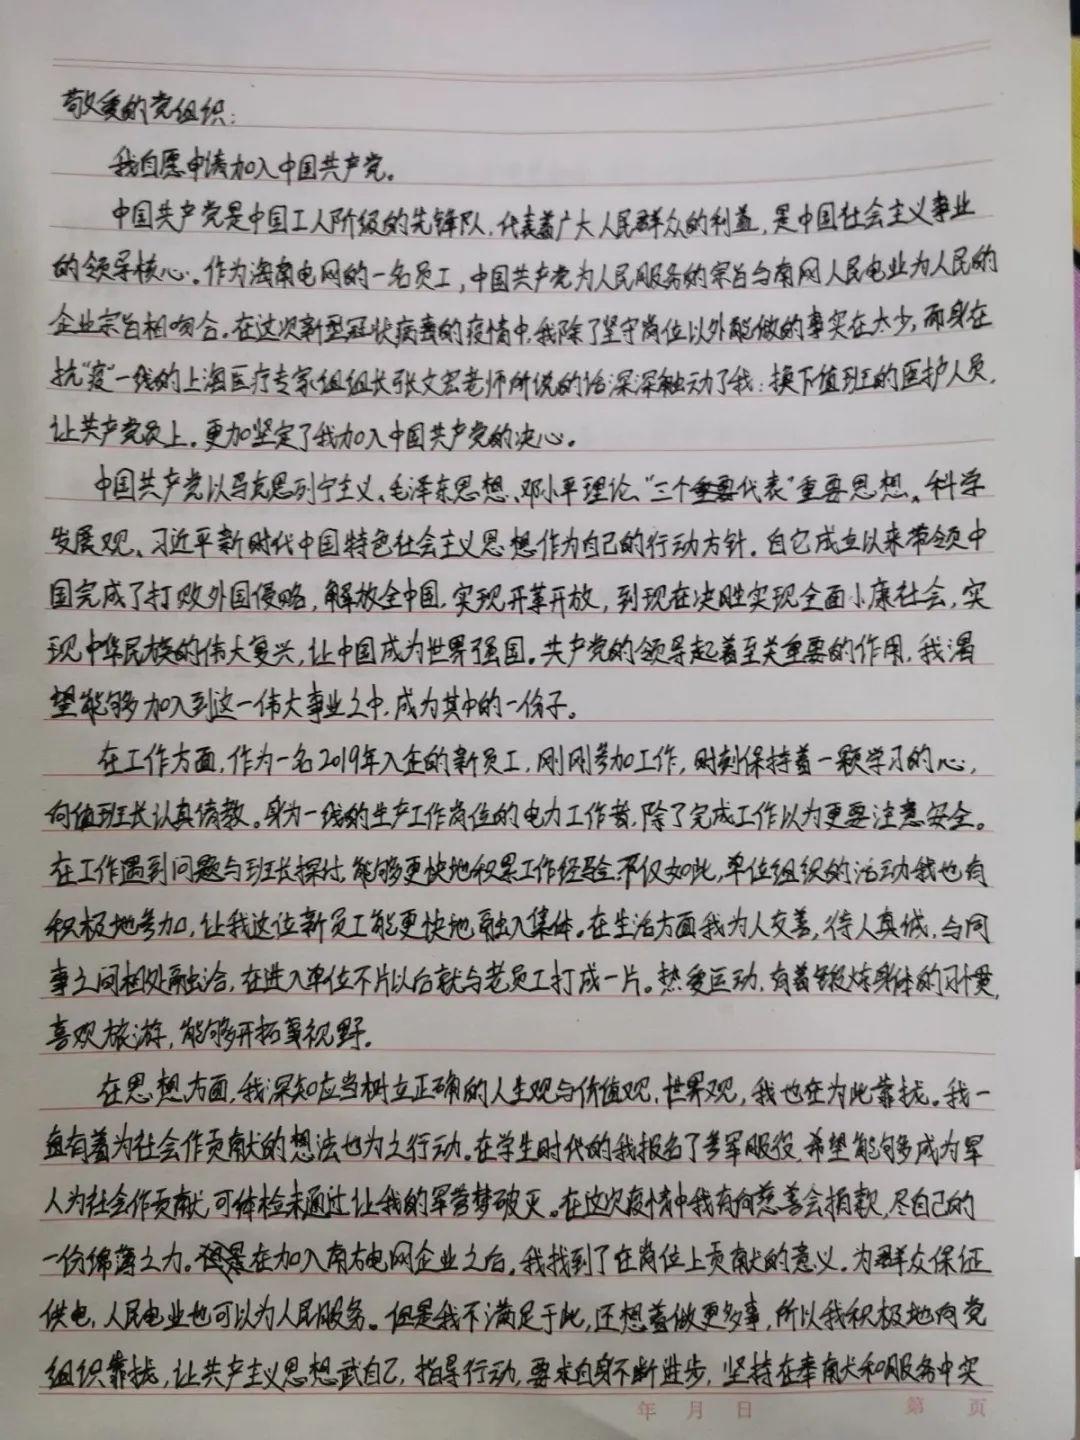 敬爱的党组织：
我自愿申请加入中国共产党。
中国共产党是中国工人阶级的先锋队，代表着广大人民群众的利益，是中国社会主义事业
的领导核心。作为海南电网的一名员工，中国共产党为人民服务的宗旨与南网人民电业为人民的
企业宗旨相吻合。在这次新型冠状病毒的疫情中，我除了坚守岗位以外能做的事实在太少，而身在
抗“疫”一线的上海医疗专家组组长张文宏老师所说的话深深触动了我：换下值班的医护人员，
让共产党员上。更加坚定了我加入中国共产党的决心。
中国共产党以马克思列宁主义、毛泽东思想、邓小平理论、“三个代表”重要思想、科学
发展观、习近平新时代中国特色社会主义思想作为自己的行动方针。自它成立以来带领中
国完成了打败外国侵略，解放全中国，实现开革开放，到现在决胜实现全面小康社会，实
现中华民族的伟大复兴，让中国成为世界强国。共产党的领导起着至关重要的作用，我渴
望能够加入到这一伟大事业之中，成为其中的一份子。
在工作方面，作为一名2019年入企的新员工，刚刚参加工作，时刻保持着一颗学习的心，
向值班长认真请教。身为一线的生产工作岗位的电力工作者，除了完成工作以为更要注意安全。
在工作遇到问题与班长探讨，能够更快地积累工作经验，不仅如此，单位组织的活动我也有
积极地参加，让我这位新员工能更快地融入集体。在生活方面我为人友善，待人真诚，与同
事之间相处融洽，在进入单位不片以后就与老员工打成一片。热爱运动，有着锻炼身体的习惯，
喜欢旅游，能够开拓视野。
在思想方面，我深知应当树立正确的人生观与价值观，世界观，我也在为此靠拢。我一
直有着为社会作贡献的想法也为之行动。在学生时代的我报名了参军服役，希望能够成为军
人为社会作贡献，可体检未通过让我的军营梦破灭。在这次疫情中我有向慈善会捐款，尽自己的
一份绵薄之力。在加入南方电网企业之后，我找到了在岗位上贡献的意义，为群众保证
供电，人民电业也可以为人民服务。但是我不满足于此，还想着做更多事，所以我积极地向党
组织靠拢，让共产主义思想武自己，指导行动，要求自身不断进步，坚持在奉献和服务中实
年 月 日
第 页